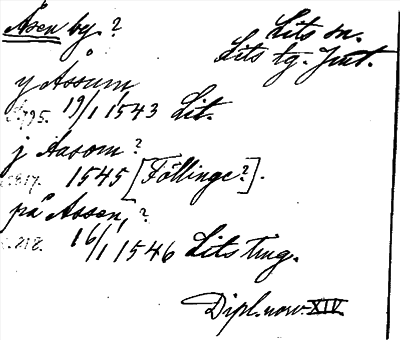 Åsen by?
Lits sn.
Lits tg. Jmt.
y Åssum
19/1 1543 Lit.
j Aasom?
1545 [Föllinge?].
på Assen,?
16/1 1546 Lits ting.
Dipl. norv. XIV.